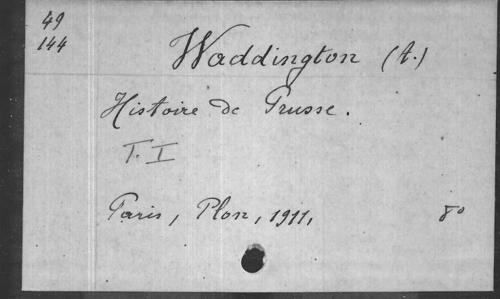 49
144
Waddington (A.)
Histoire de Prusse.
T. I
Paris, Plon, 1911, 8°